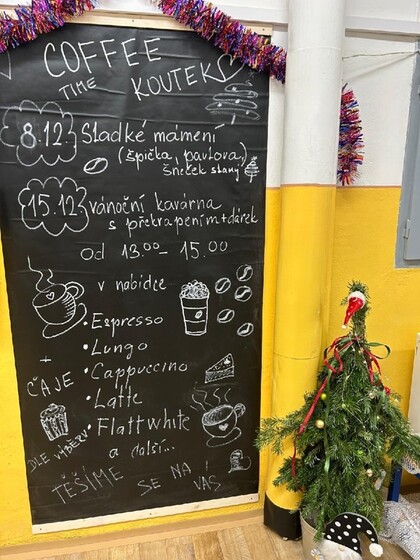 COFFEE
TIME KOUTEK
8.12. Sladké mámení
(špička, pavlova,
šneček slaný)
15.12. vánoční kavárna
s překvapením + dárek
od 13.00 – 15.00
v nabídce
• Espresso
• Lungo
• Cappuccino
• Latte
• Flattwhite
a další...
+
ČAJE
DLE VÝBĚRU
TĚŠÍME SE NA VÁS